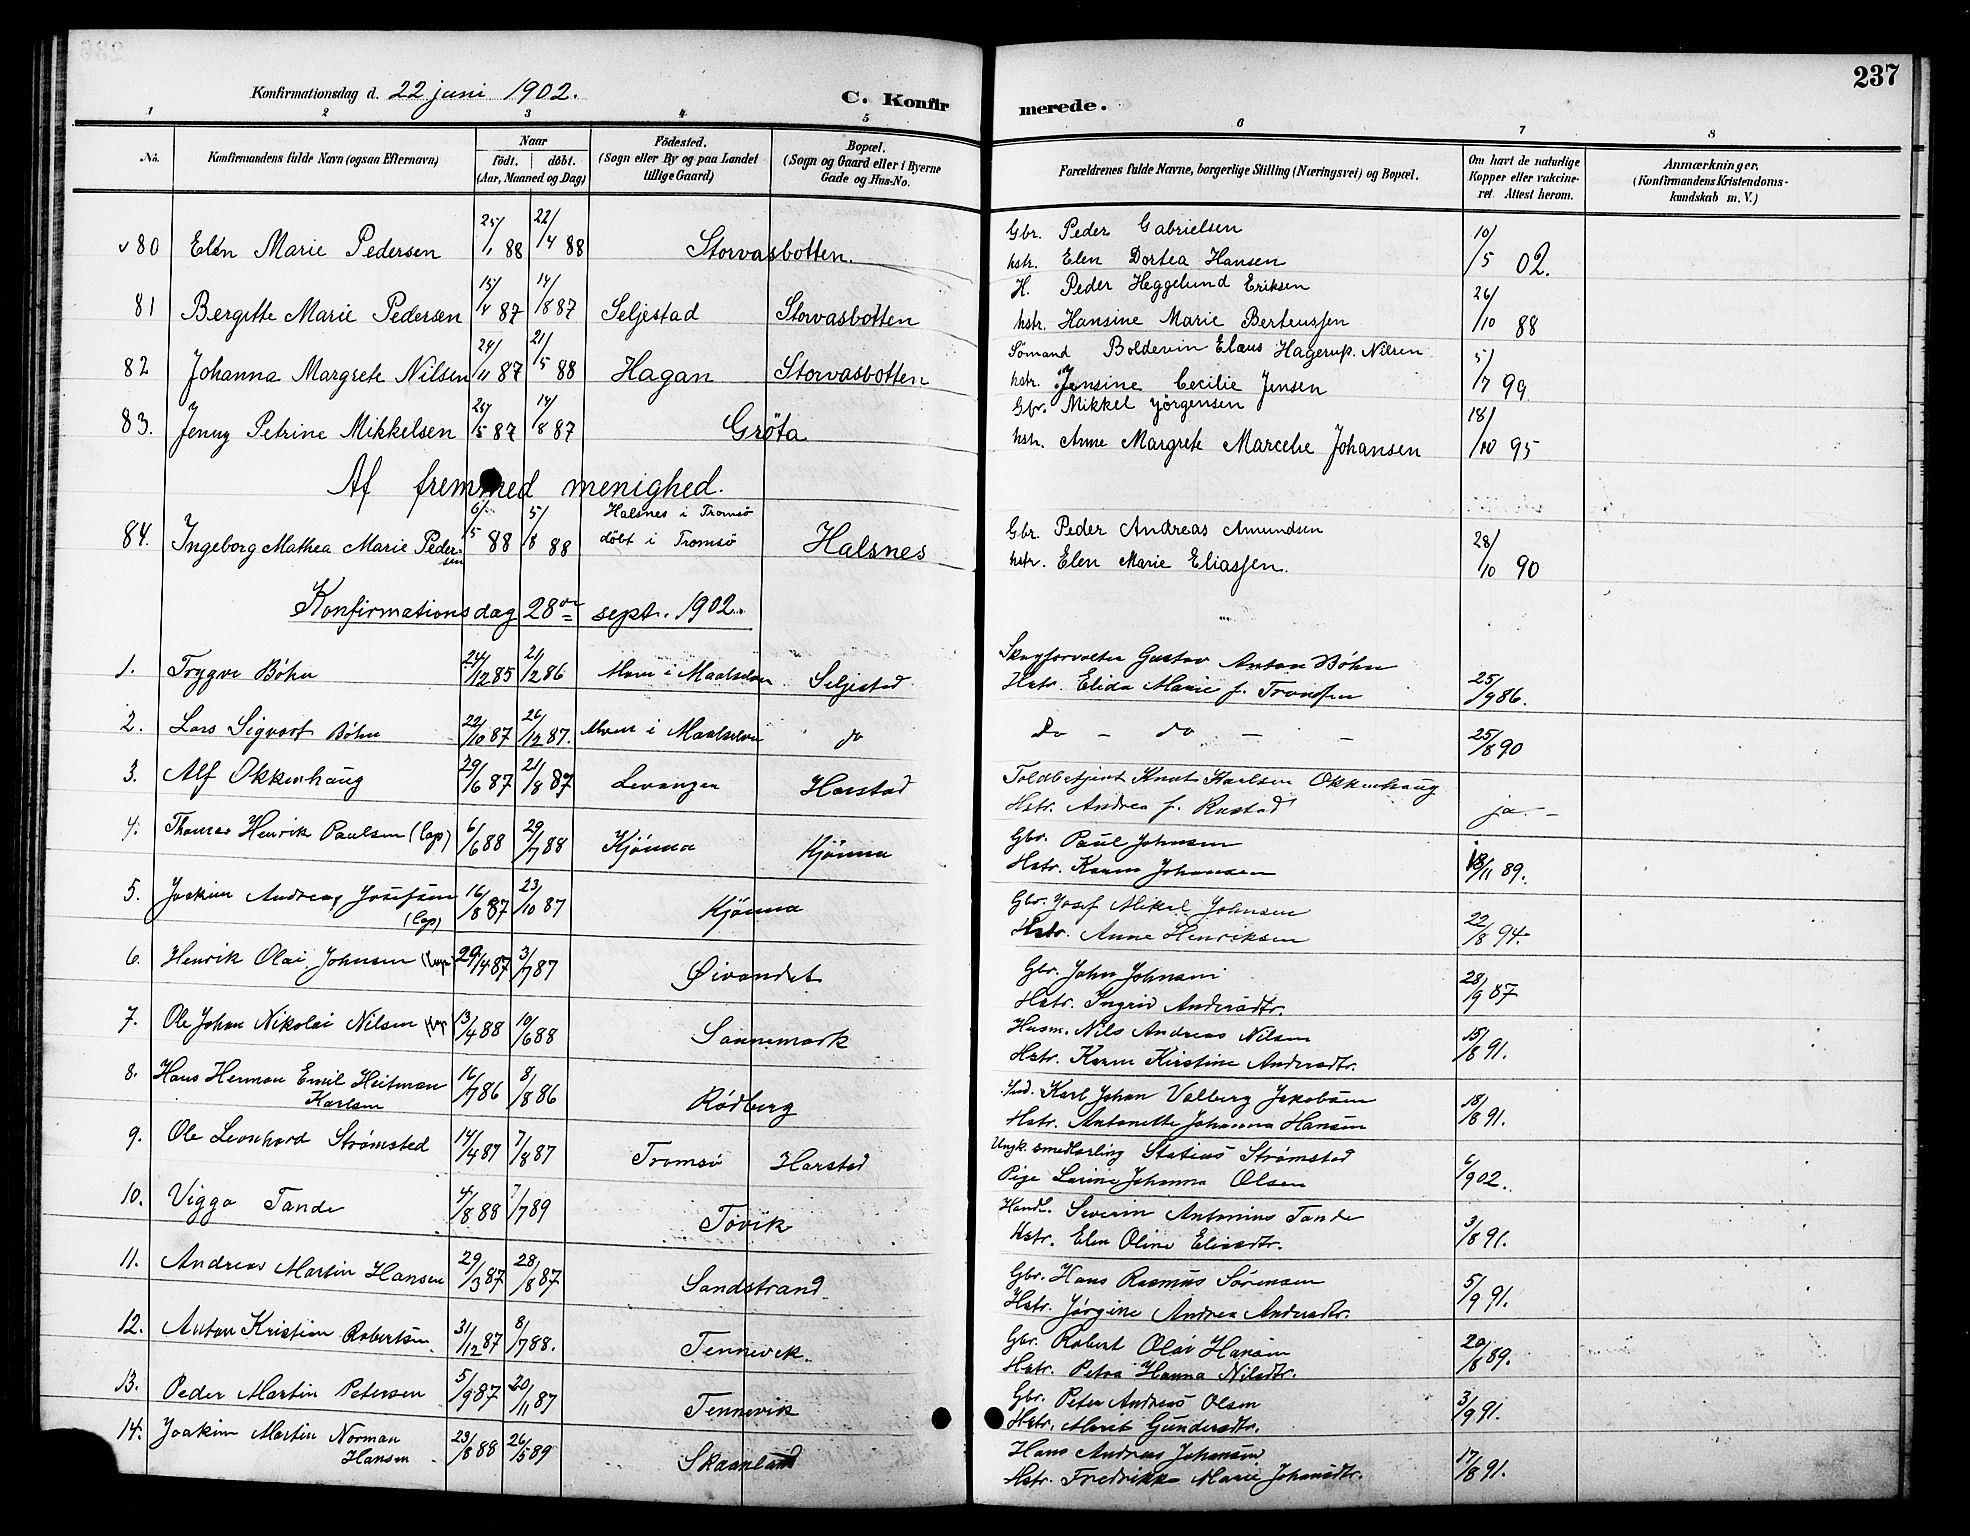 237
Konfirmationsdag d. 22 juni 1902.
C. Konfirmerede.
1 2 3 4 5 6 7 8
No. Konfirmandens fulde Navn (ogsaa Efternavn) Naar Født. døbt. (Aar, Maaned og Dag) Fødested. (Sogn eller By og paa Landet tillige Gaard) Bopæl. (Sogn og Gaard eller i Byerne Gade og Hus-No. Forældrenes fulde Navne, borgerlige Stilling (Næringsvei) og Bopæl. Om havt de naturlige Kopper eller vakcineret. Attest herom. Anmærkninger, (Konfirmandens Kristendomskundskab m. V.)
v 80 Elen Marie Pedersen 25/1 88 22/4 88 Storvasbotten. Gbr. Peder Gabrielsen 10/5 02.
hstr. Elen Dortea Hansen
81 Bergitte Marie Pedersen 15/4 87 14/8 87 Seljestad Storvasbotten H. Peder Heggelund Eriksen 26/10 88
hstr. Hansine Marie Berteussen
82 Johanna Margrete Nilsen 24/11 87 21/5 88 Hagan Storvasbotten Sømand Boldevin Elæus Hagerup Nilsen 5/7 99
hstr. Jensine Cecilie Jensen
83. Jenny Petrine Mikkelsen 25/5 87 14/8 87 Grøta Gbr. Mikkel Jörgensen 18/10 95
hstr. Anne Margrete Marcelie Johansen
Af fremmed menighed.
84. Ingeborg Mathea Marie Pedersen 6/5 88 5/8 88 Halsnes i Tromsö döbt i Tromsö Halsnes Gbr. Peder Andreas Amundsen 28/10 90
hstr. Elen Marie Eliassen.
Konfirmationsdag 28de sept. 1902.
1. Trygve Bøhn 24/12 85 21/2 86 Moen i Maalselven Seljestad Skogforvalter Gustav Anton Bøhn 25/9 86.
Hstr. Elida Marie f. Tronsen
2. Lars Sigvart Bøhn 22/10 87 26/12 87. Moen i Maalselven do do - do - - 25/8 90
3. Alf Okkenhaug 29/6 87 21/8 87 Levanger Harstad Toldbetjent Knut Karlsen Okkenhaug ja. -
Hstr. Andrea f. Rustad
4. Thomas Henrik Paulsen (lap) 6/6 88 29/7 88 Kjønna Kjønna Gbr. Paul Johnsen 18/11 89.
Hstr. Karen Johansen
5. Joakim Andreas Josefsen (lap) 16/8 87 23/10 87 Kjønna Gbr. Josef Mikal Johnsen 22/8 94.
Hstr. Anne Henriksen
6. Henrik Olai Johnsen (lap) 29/4 87 3/7 87 Øivandet Gbr. John Johnsen 28/9 87
Hstr. Ingrid Andersdtr.
7. Ole Johan Nikolai Nilsen (lap) 13/4 88 10/6 88 Sannemark Husm. Nils Andreas Nilsen 15/8 91.
Hstr. Karen Kirstine Andersdtr.
8. Hans Herman Emil Heitman Karlsen 16/7 86 8/8 86 Rødberg Karl Johan Valberg Jakobsen 18/8 91.
Hstr. Antonette Johanna Hansen
9. Ole Leonhard Strømsted 14/4 87 7/8 87 Tromsø Harstad Ungk. smedlærling Statius Strømsted 6/9 02.
Pige Larine Johanna Olsen
10. Viggo Tande 4/8 88 7/7 89 Tovik Handl. Severin Antonius Tande 3/8 91.
Hstr. Elen Oline Eliasdtr.
11. Andreas Martin Hansen 29/3 87 28/8 87 Sandstrand Gbr. Hans Rasmus Sørensen 5/9 91.
Hstr. Jørgine Andrea Andersdtr.
12. Anton Kristian Robertsen 31/12 87 8/7 88. Tennevik. Gbr. Robert Olai Hansen 20/8 89.
Hstr. Petra Hanna Nilsdtr.
13. Peder Martin Petersen 5/9 87 20/11 87 Tennevik Gbr. Peter Andreas Olsen 3/9 91.
Hstr. Marit Gundersdtr.
14. Joakim Martin Norman Hansen 23/8 88 26/5 89 Skaanland Hans Andreas Johansen 17/8 91.
Hstr. Fredrikke Marie Johansdtr.